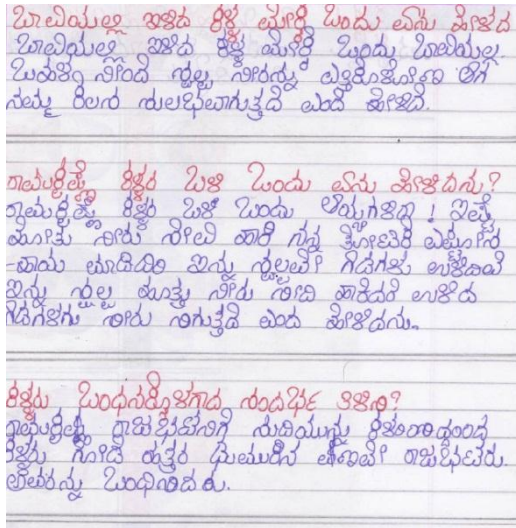 ಬಾವಿಯಲ್ಲಿ ಇಳಿದ ಕಳ್ಳ ಮೇಲಕ್ಕೆ ಬಂದು ಏನು ಹೇಳಿದ
ಬಾವಿಯಲ್ಲಿ ಇಳಿದ ಕಳ್ಳ ಮೇಲಕ್ಕೆ ಬಂದು ಬಾವಿಯಲ್ಲಿ
ನೀರಿದೆ ಸ್ವಲ್ಪ ನೀರನ್ನು ಎತ್ತಿಕೊಳ್ಳೋಣ ಆಗ
ನಮ್ಮ ಕೆಲಸ ಸುಲಭವಾಗುತ್ತದೆ ಎಂದ ಹೇಳಿದ.
ರಾಮಕೃಷ್ಣ ಕಳ್ಳರ ಬಳಿ ಬಂದು ಏನು ಹೇಳಿದನು?
ರಾಮಕೃಷ್ಣ ಕಳ್ಳರ ಬಳಿ ಬಂದು ಅಯ್ಯಗಳಿರಾ! ಇಷ್ಟು
ಹೊತ್ತು ನೀರು ಸೇದಿ ಹಾಕಿ ನನ್ನ ತೋಟಕ್ಕೆ ಎಷ್ಟೋ
ಮಾಡಿದಿರಿ ಇನ್ನು ಸ್ವಲ್ಪವೇ ಗಿಡಗಳು ಉಳಿದಿವೆ
ಇನ್ನು ಸ್ವಲ್ಪ ಹೊತ್ತು ನೀರು ಸೇದಿ ಹಾಕಿದರೆ ಉಳಿದ
ಗಿಡಗಳಿಗು ನೀರು ಸಿಗುತ್ತದೆ ಎಂದ ಹೇಳಿದನು.
ಕಳ್ಳರು ಬಂಧನಕ್ಕೊಳಗಾದ ಸಂದರ್ಭ ತಿಳಿಸಿ?
ರಾಮಕೃಷ್ಣ ರಾಜಭಟರಿಗೆ ಸುದ್ದಿಯನ್ನು
ಕಳ್ಳರು ಗೋಡೆ ಹತ್ತಿರ ರಾಜಭಟರು
ಅವರನ್ನು ಬಂಧಿಸಿದರು.